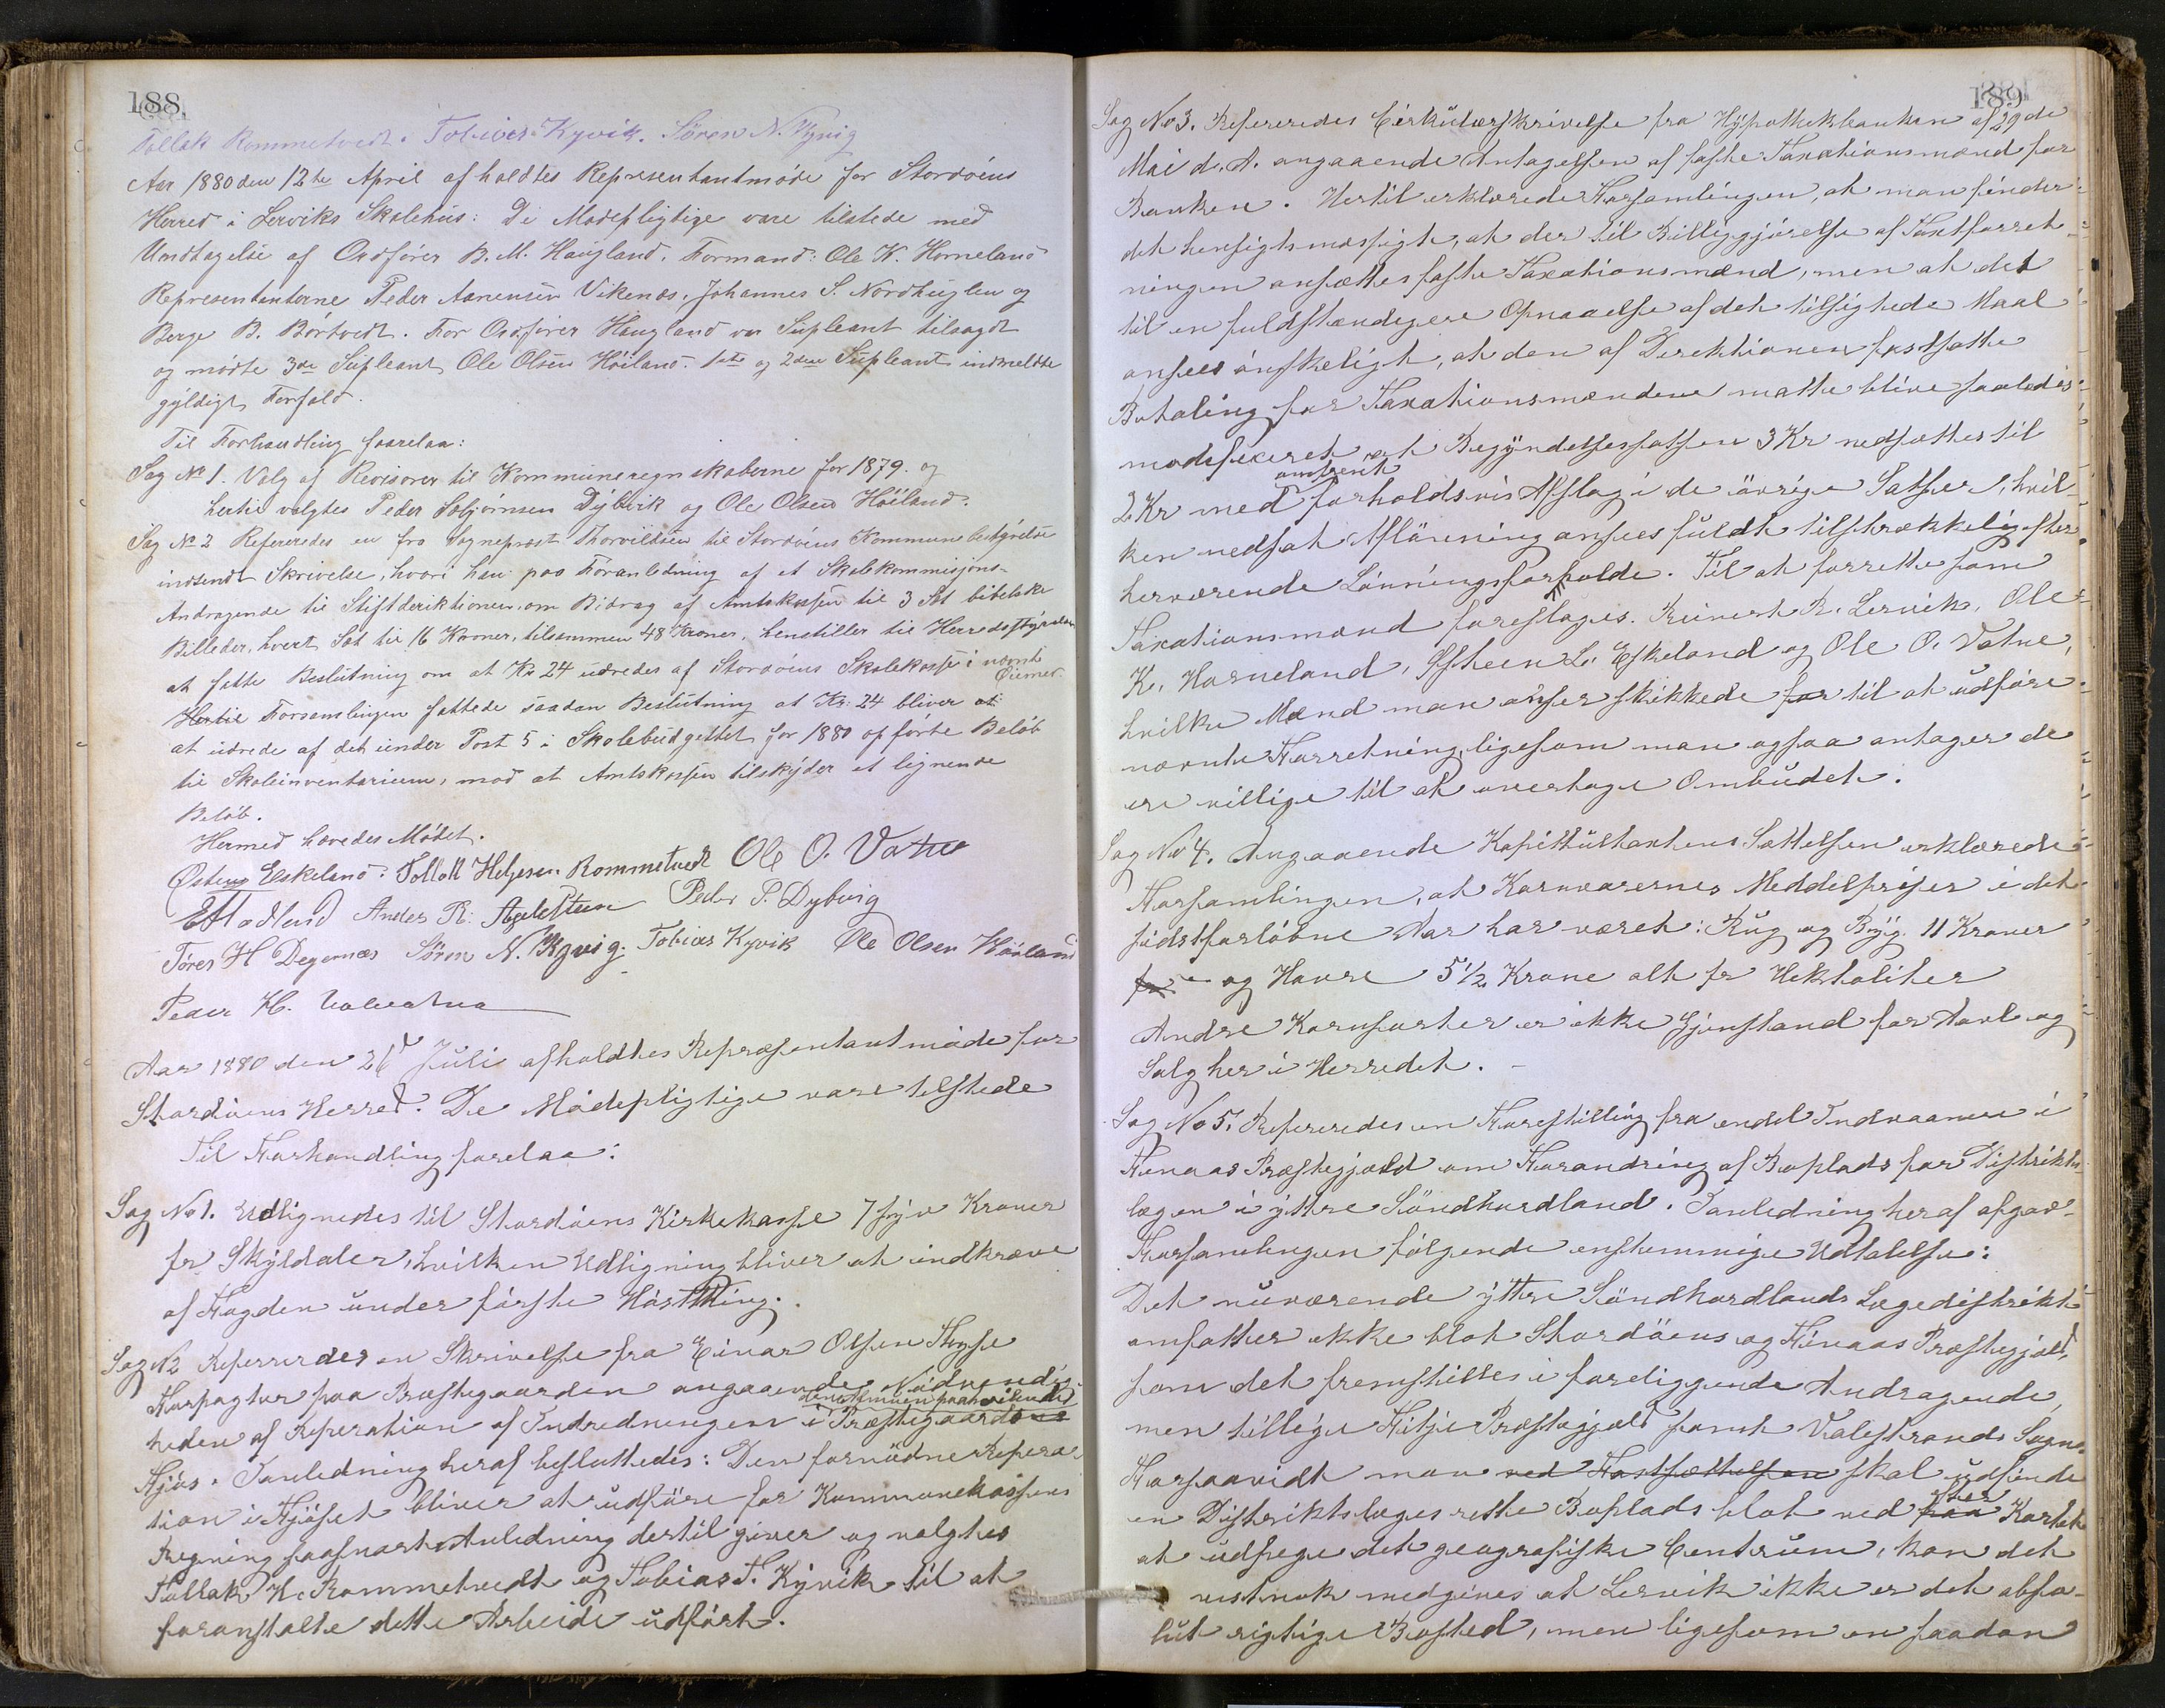 188
Tollak Rommetvedt. Tobias Kyvik. Sören N. Kyvig
Aar 1880 den 12te April afholdtes Representantmöde for Stordöens
Herred i Lerviks Skolehus: De Mödepligtige vare tilstede med
Undtagelse af Ordförer B. M. Haugland. Formand: Ole K. Horneland
Representanterne Peder Aanensen Vikenæs, Johannes S. Nordhuglen og
Berge B. Börtvedt. For Ordförer Haugland var Supleant tilsagdt
og mödte 3die Supleant Ole Olsen Höiland. 1ste og 2den Supleant indmeldte
gyldigt Forfald.
Til Forhandling forelaa:
Sag No 1. Valg af Revisorer til Kommuneregnskaberne for 1879. og
hertil valgtes Peder Asbjörnsen Dybvik og Ole Olsen Höiland.
Sag No 2 Refereredes en fra Sogneprest Thorvildsen til Stordöens Kommunebestyrelse
indsendt Skrivelse, hvori han paa Foranledning af et Skolekommissjons-
Andragende til Stiftderiktionen om Bidrag af Amtskassen til 3 Sæt bibelske
Billeder, hvert Sæt til 16 Kroner, tilsammen 48 Kroner, henstiller til Herredsstyrelsen
at fatte Beslutning om at Kr 24 udredes af Stordöens Skolekasse i nævnte
Öiemed.
Hertil Forsamlingen fattede saadan Beslutning at Kr: 24 bliver at
at udrede af det under Post 5 i Skolebudgettet for 1880 opförte Belöb
til Skoleinventarium, mod at Amtskassen tilskyder et lignende
Belöb.
Hermed hævedes Mödet.
Östen Eskeland. Tollak Helgesen Rommetvedt Ole O. Vatne
E Hadland Anders R: Agdestein Peder P. Dybvig
Töres H Degernæs Sören N. Kyvig. Tobias Kyvik Ole Olsen Höiland
Peder H. Valvatna
Aar 1880 den 26de Juli afholdtes Repræsentantmöde for
Stordöens Herred. De Mödepligtige vare tilstede
Til Forhandling forelaa:
Sag No 1. Udlignedes til Stordöens Kirkekasse 7 syv Kroner
pr Skyldaler, hvilken Udligning bliver at indkræve
af Fogden under förste Höstthing.
Sag N2 Refereredes en Skrivelse fra Einar Olsen
Forpagter paa Præstegaarden angaaende Nödvendig-
den Kommunen paahvilende
heden af Reperation af Indredningen i Præstegaardens
Fjös. I Anledning heraf besluttedes: Den fornödne Repera-
tion i Fjöset bliver at udföre for Kommunekassens
Regning saasnart Anledning dertil gives og valgtes
Tollak H. Rommetvedt og Tobias T. Kyvik til at
foranstalte dette Arbeide udfört.
189
Sag No 3. Refereredes Cirkulærskrivelse fra Hypothekbanken af 29de
Mai d. A. angaaende Antagelsen af faste Taxationsmænd for
Banken. Hertil erklærede Forsamlingen, at man finder
det hensigtsmæssigt, at der til Billiggjörelse af Taxtforret-
ningen ansættes faste Taxationsmænd, men at det
til en fuldstændigere Opnaaelse af det tilsigtede Maal
ansees önskeligt, at den af Direktionen fastsatte
Betaling for Taxationsmændene maatte blive saaledes
modificeret at Begyndelsessatsen 3 Kr nedsættes til
omtrent
2 Kr med forholdsvis Afslag i de övrige Satser, hvil-
ken nedsat Aflönning ansees fuldt tilstrækkelig efter
herværende Lönningsforholde. Til at forrette som
Taxationsmænd foreslages. Reinert R. Lervik, Ole
K. Horneland, Östen L. Eskeland og Ole O. Vatne,
hvilke Mænd man anser skikkede for til at udföre
nævnte Forretning, ligesom man ogsaa antager de
ere villige til at overtage Ombudet.
Sag No 4. Angaaende Kapitultaxtens Sættelsen erklærede
Forsamlingen, at Kornvarernes Meddelpriser i det
sidstforlöbne Aar har været: Rug og Byg. 11 Kroner
for og Havre 5 1/2 Krone alt pr Hektoliter
Andre Kornsorter er ikke Gjenstand for Avl og
Salg her i Herredet.
Sag No 5. Refereredes en Forestilling fra endel Indvaanere i
Finaas Præstegjæld om Forandring af Boplads for Distrikts-
lægen i yttre Söndhordland. I Anledning heraf afgav
Forsamlingen fölgende enstemmige Udtalelse:
Det nuværende yttre Söndhordlands Lægedistrikt
omfatter ikke blot Stordöens og Finaas Præstegjæld,
som det fremstilles i foreliggende Andragende,
men tillige Fitje Præstegjæld samt Valestrands Sogn.
Forsaavidt man ved Fastsættelsen skal udfinde
efter
en Distriktslæges rette Boplads blot ved paa Kartet
at udsøge det geografiske Centrum, kan det
vistnok medgives at Lervik ikke er det abso-
lut rigtige Bosted, men ligesom en saadan